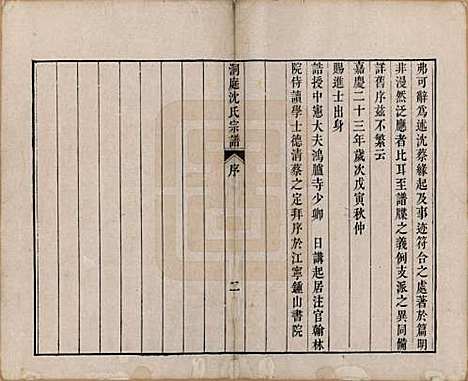 弗可辭爲述沈蔡緣起及事迹符合之處著於篇明
非漫然泛應者比耳至譜牒之義例支派之異同備
詳舊序茲不繁云
嘉慶二十三年歲次戊寅秋仲
賜進士出身
誥授中憲大夫鴻臚寺少卿　日講起居注官翰林
院侍讀學士德清蔡之定拜序於江寧鍾山書院
洞庭沈氏宗譜　序　二